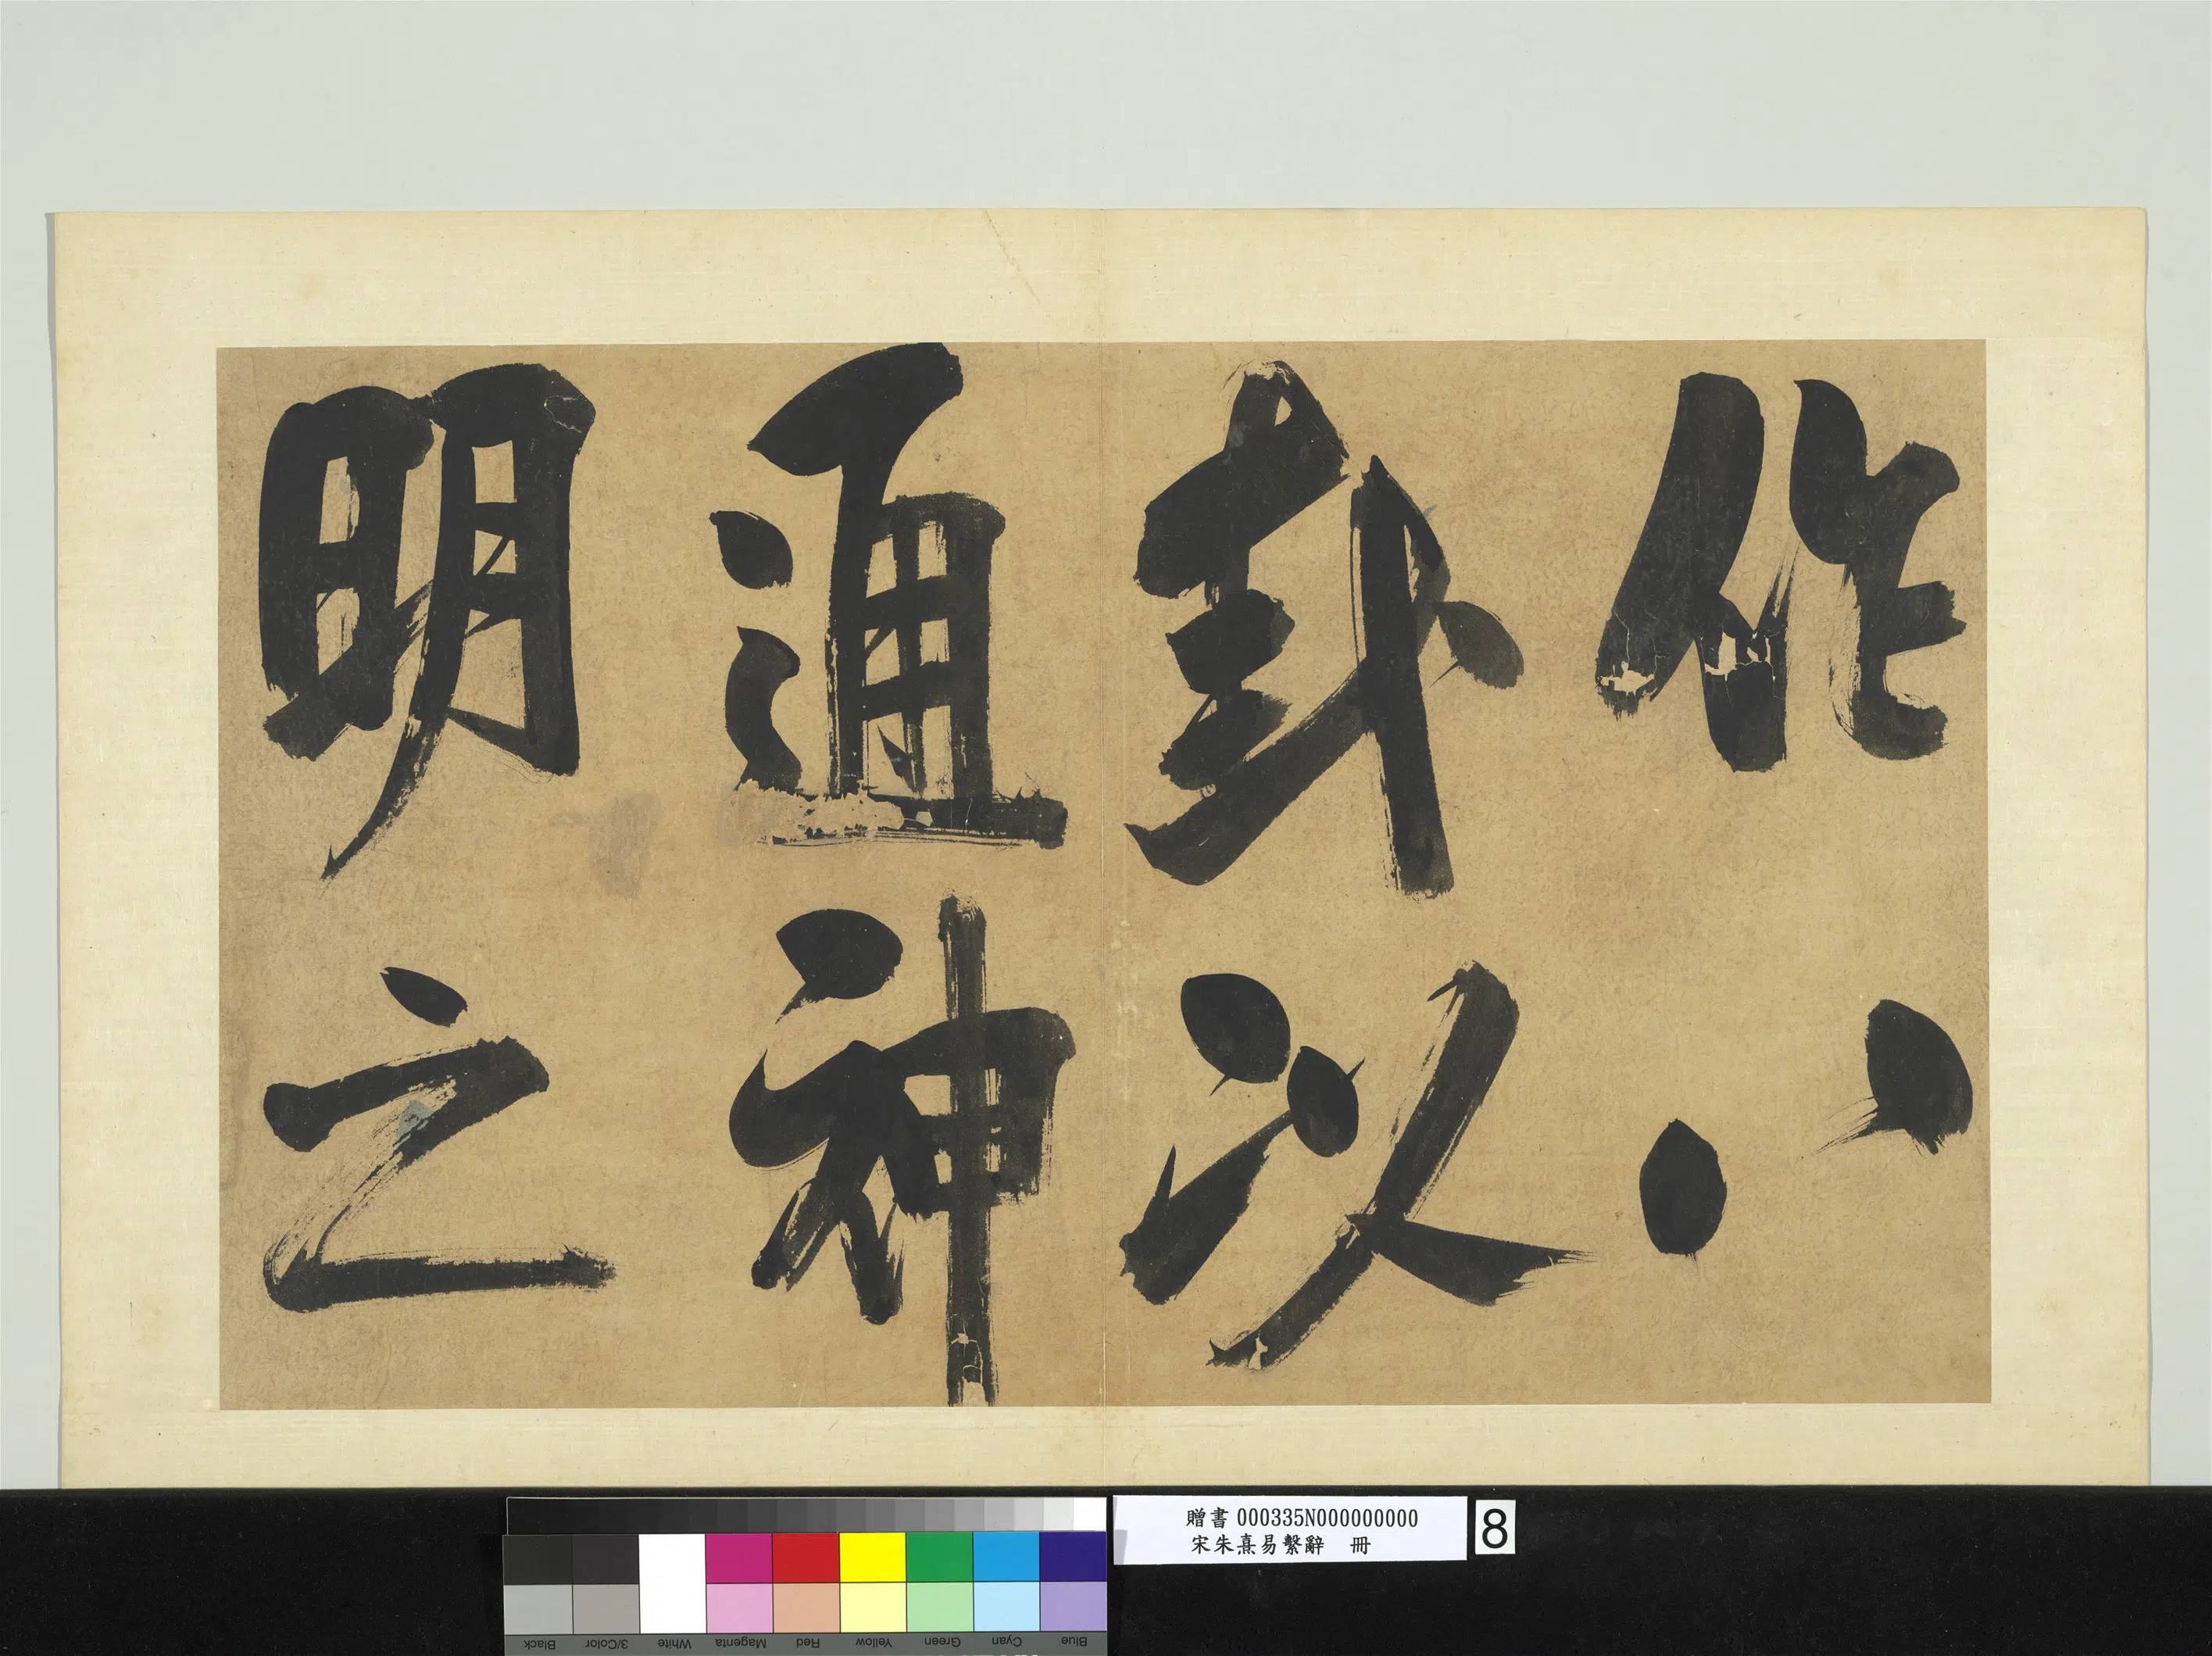 作八
卦以
通神
明之
贈書 000335N000000000
宋朱熹易繫辭 冊
8
Black
3/Color
White
Magenta
Red
Yellow
Green
Cyan
Blue